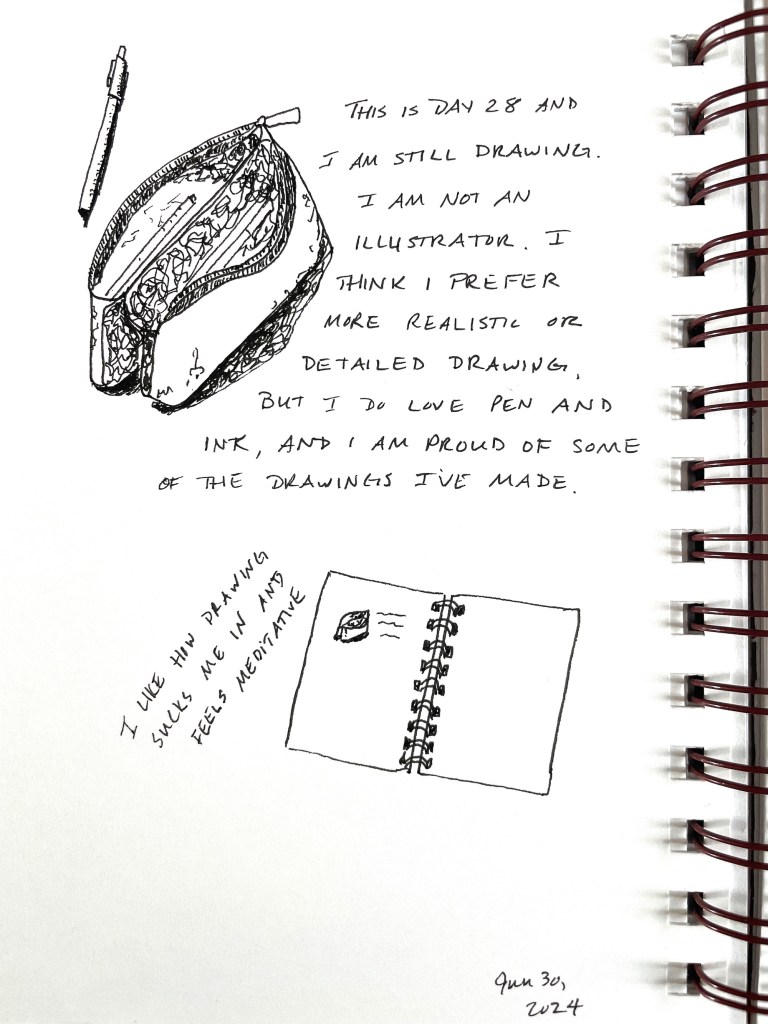 THIS IS DAY 28 AND
I AM STILL DRAWING.
I AM NOT AN
ILLUSTRATOR. I
THINK I PREFER
MORE REALISTIC OR
DETAILED DRAWING,
BUT I DO LOVE PEN AND
INK, AND I AM PROUD OF SOME
OF THE DRAWINGS I'VE MADE.
I LIKE HOW DRAWING
SUCKS ME IN AND
FEELS MEDITATIVE
Jun 30,
2024